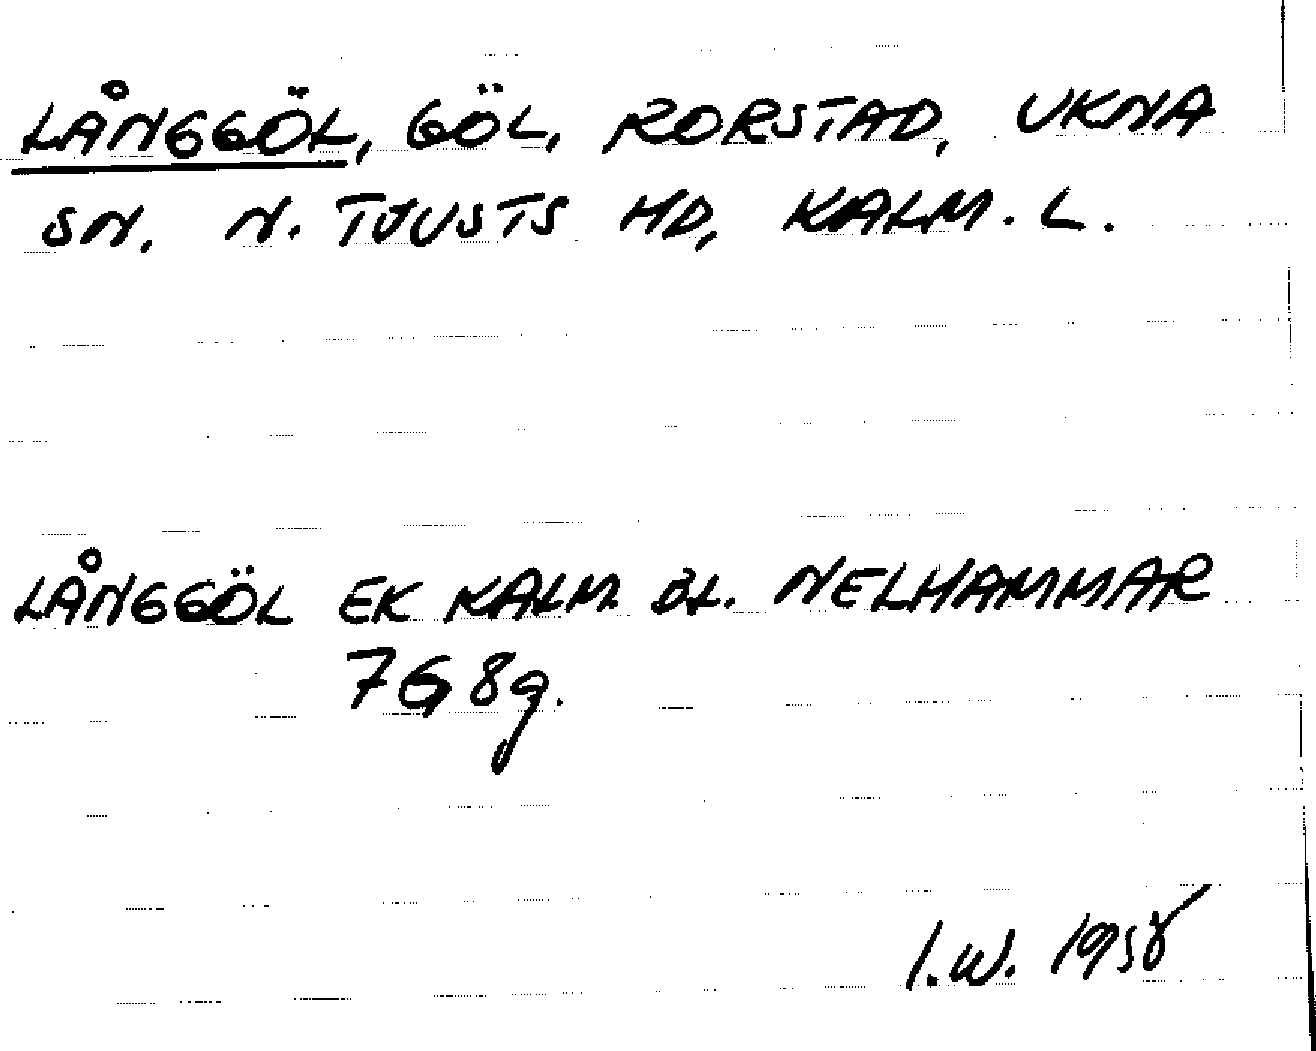 LÅNGGÖL, GÖL, RORSTAD, UKNA
SN. N. TJUSTS HD, KALM. L.
LÅNGGÖL EK KALM. BL. NELHAMMAR
7G 8g.
I.W. 1958